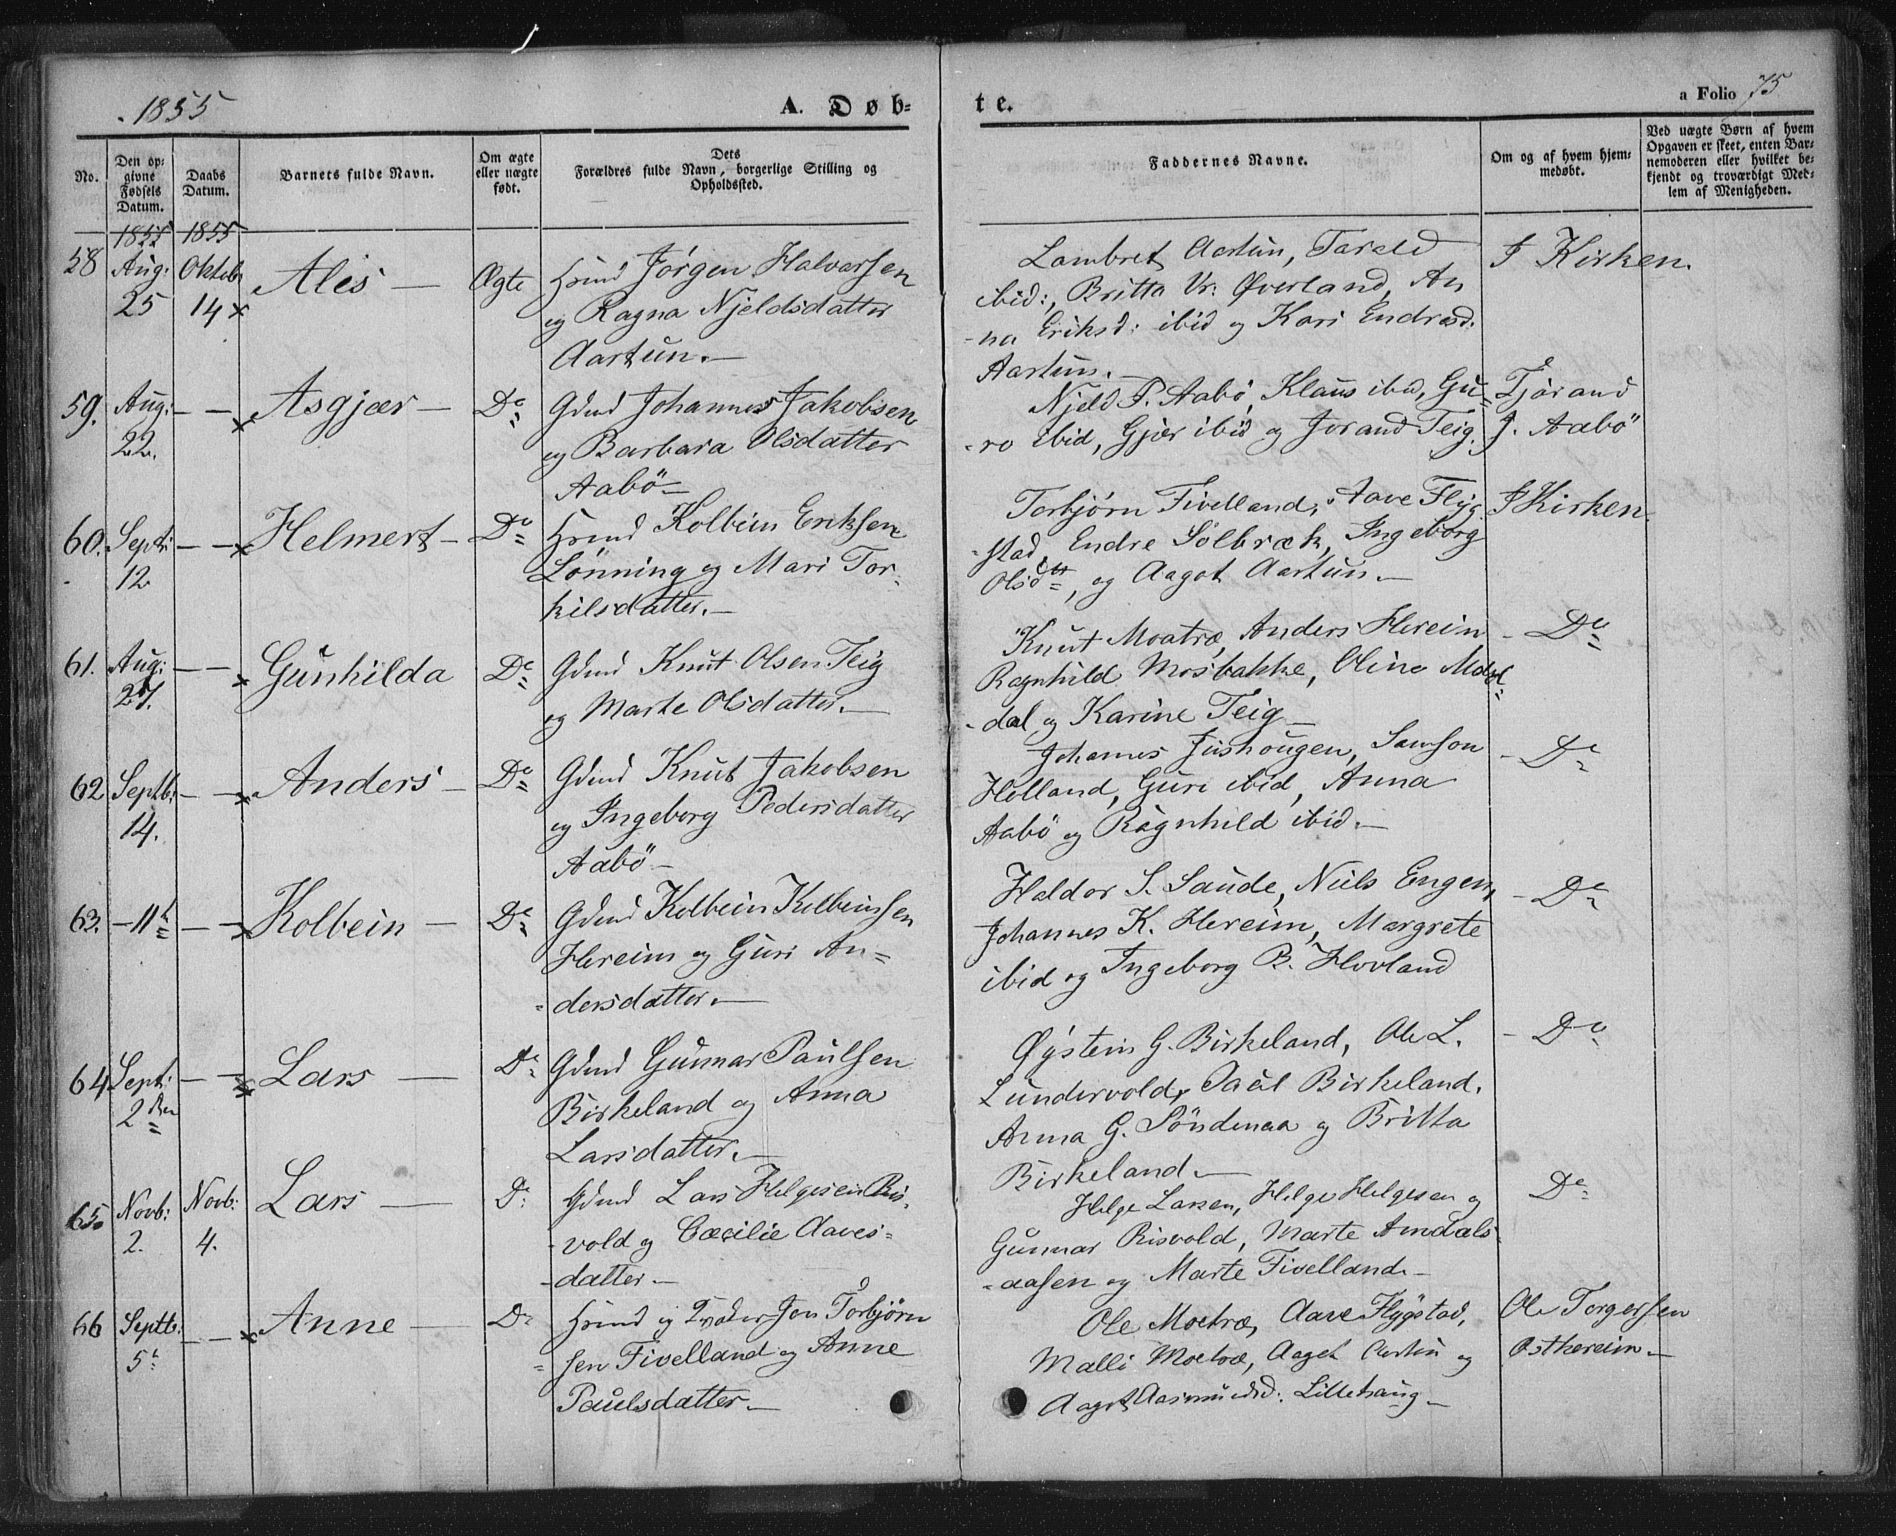 1855
A. Døb-
te.
a Folio 75
No.
Den op-
givne
Fødsels
Datum.
Daabs
Datum.
Barnets fulde Navn.
Om ægte
eller uægte
født.
Dets
Forældres fulde Navn, borgerlige Stilling og
Opholdssted.
Faddernes Navne.
Om og af hvem hjem-
medøbt.
Ved uægte Børn af hvem
Opgaven er skeet, enten Bar-
nemoderen eller hvilket be-
kjendt og troværdigt Med-
lem af Menigheden.
1855 1855
58 Aug: 25 Oktob 14 x Alis — Ægte
Hmnd Jørgen Halvorsen
og Ragna Njeldsdatter
Aartun.—
Lambret Aartun, Tarald
ibid:, Britta Vr: Øverland, An
-na Eriksd: ibid og Kari Endresd:
Aartun.—
I Kirken.
59. Aug: 22. — — x Asgjær — Do
Gdmd Johannes Jakobsen
og Barbara Olsdatter
Aabö —
Njeld P. Aabö, Klaus ibid, Gu-
-ro ibid, Gjør ibid og Jorand Teig.
Tjörand
J. Aabö
60. Septr: 12 — — x Helmert — Do
Hmnd Kolbein Eriksen
Lønning og Mari Tor-
kilsdatter.—
Torbjørn Fivelland, Aave Flyg-
-stad, Endre Solbræk, Ingeborg
Olsdtr, og Aagot Aartun.—
I Kirken.
61. Aug: 27. — — x Gunhilda Do
Gdmd Knut Olsen Teig
og Marte Olsdatter.—
Knut Moatræ, Anders Hereim
Ragnhild Mosbakke, Oline
-dal og Karine Teig —
— Do
62 Septb: 14. — — x Anders — Do
Gdmd Knut Jakobsen
og Ingeborg Pedersdatter
Aabö —
Johannes Jushougen, Samson
Helland, Guri ibid, Anna
Aabö og Ragnhild ibid.—
— Do
63. — 11te — — x Kolbein — Do
Gdmd Kolbein Kolbeinsen
Hereim og Guri An-
-dersdatter.—
Haldor S. Saude, Niels Engen,
Johannes K. Hereim, Margrete
ibid og Ingeborg B. Hovland
— Do
64 Sept: 2den — — x Lars — Do
Gdmd Gunnar Paulsen
Birkeland og Anna
Larsdatter.—
Øystein G. Birkeland, Ole L.
Lundervold, Paul Birkeland.
Anna G. Söndenaa og Britta
Birkeland.—
— Do
65. Novb: 2. Novb: 4. Lars — Do
Gdmd Lars Helgesen Ris-
-vold og Cæcilie Aaves-
-datter.—
Helge Larsen, Helge Helgesen og
Gunnar Risvold, Marte Amdals-
-aasen og Marte Fivelland.—
Do
66 Septb: 5t — — x Anne — Do
Hmnd og Torbjørn
-sen Fivelland og Anne
Paulsdatter.—
Ole Moetræ, Aave Flygstad,
Malli Moetræ, Aagot Aartun og
Aagot Aasmundsd: Lillehaug —
Ole Torgersen
Østhereim —